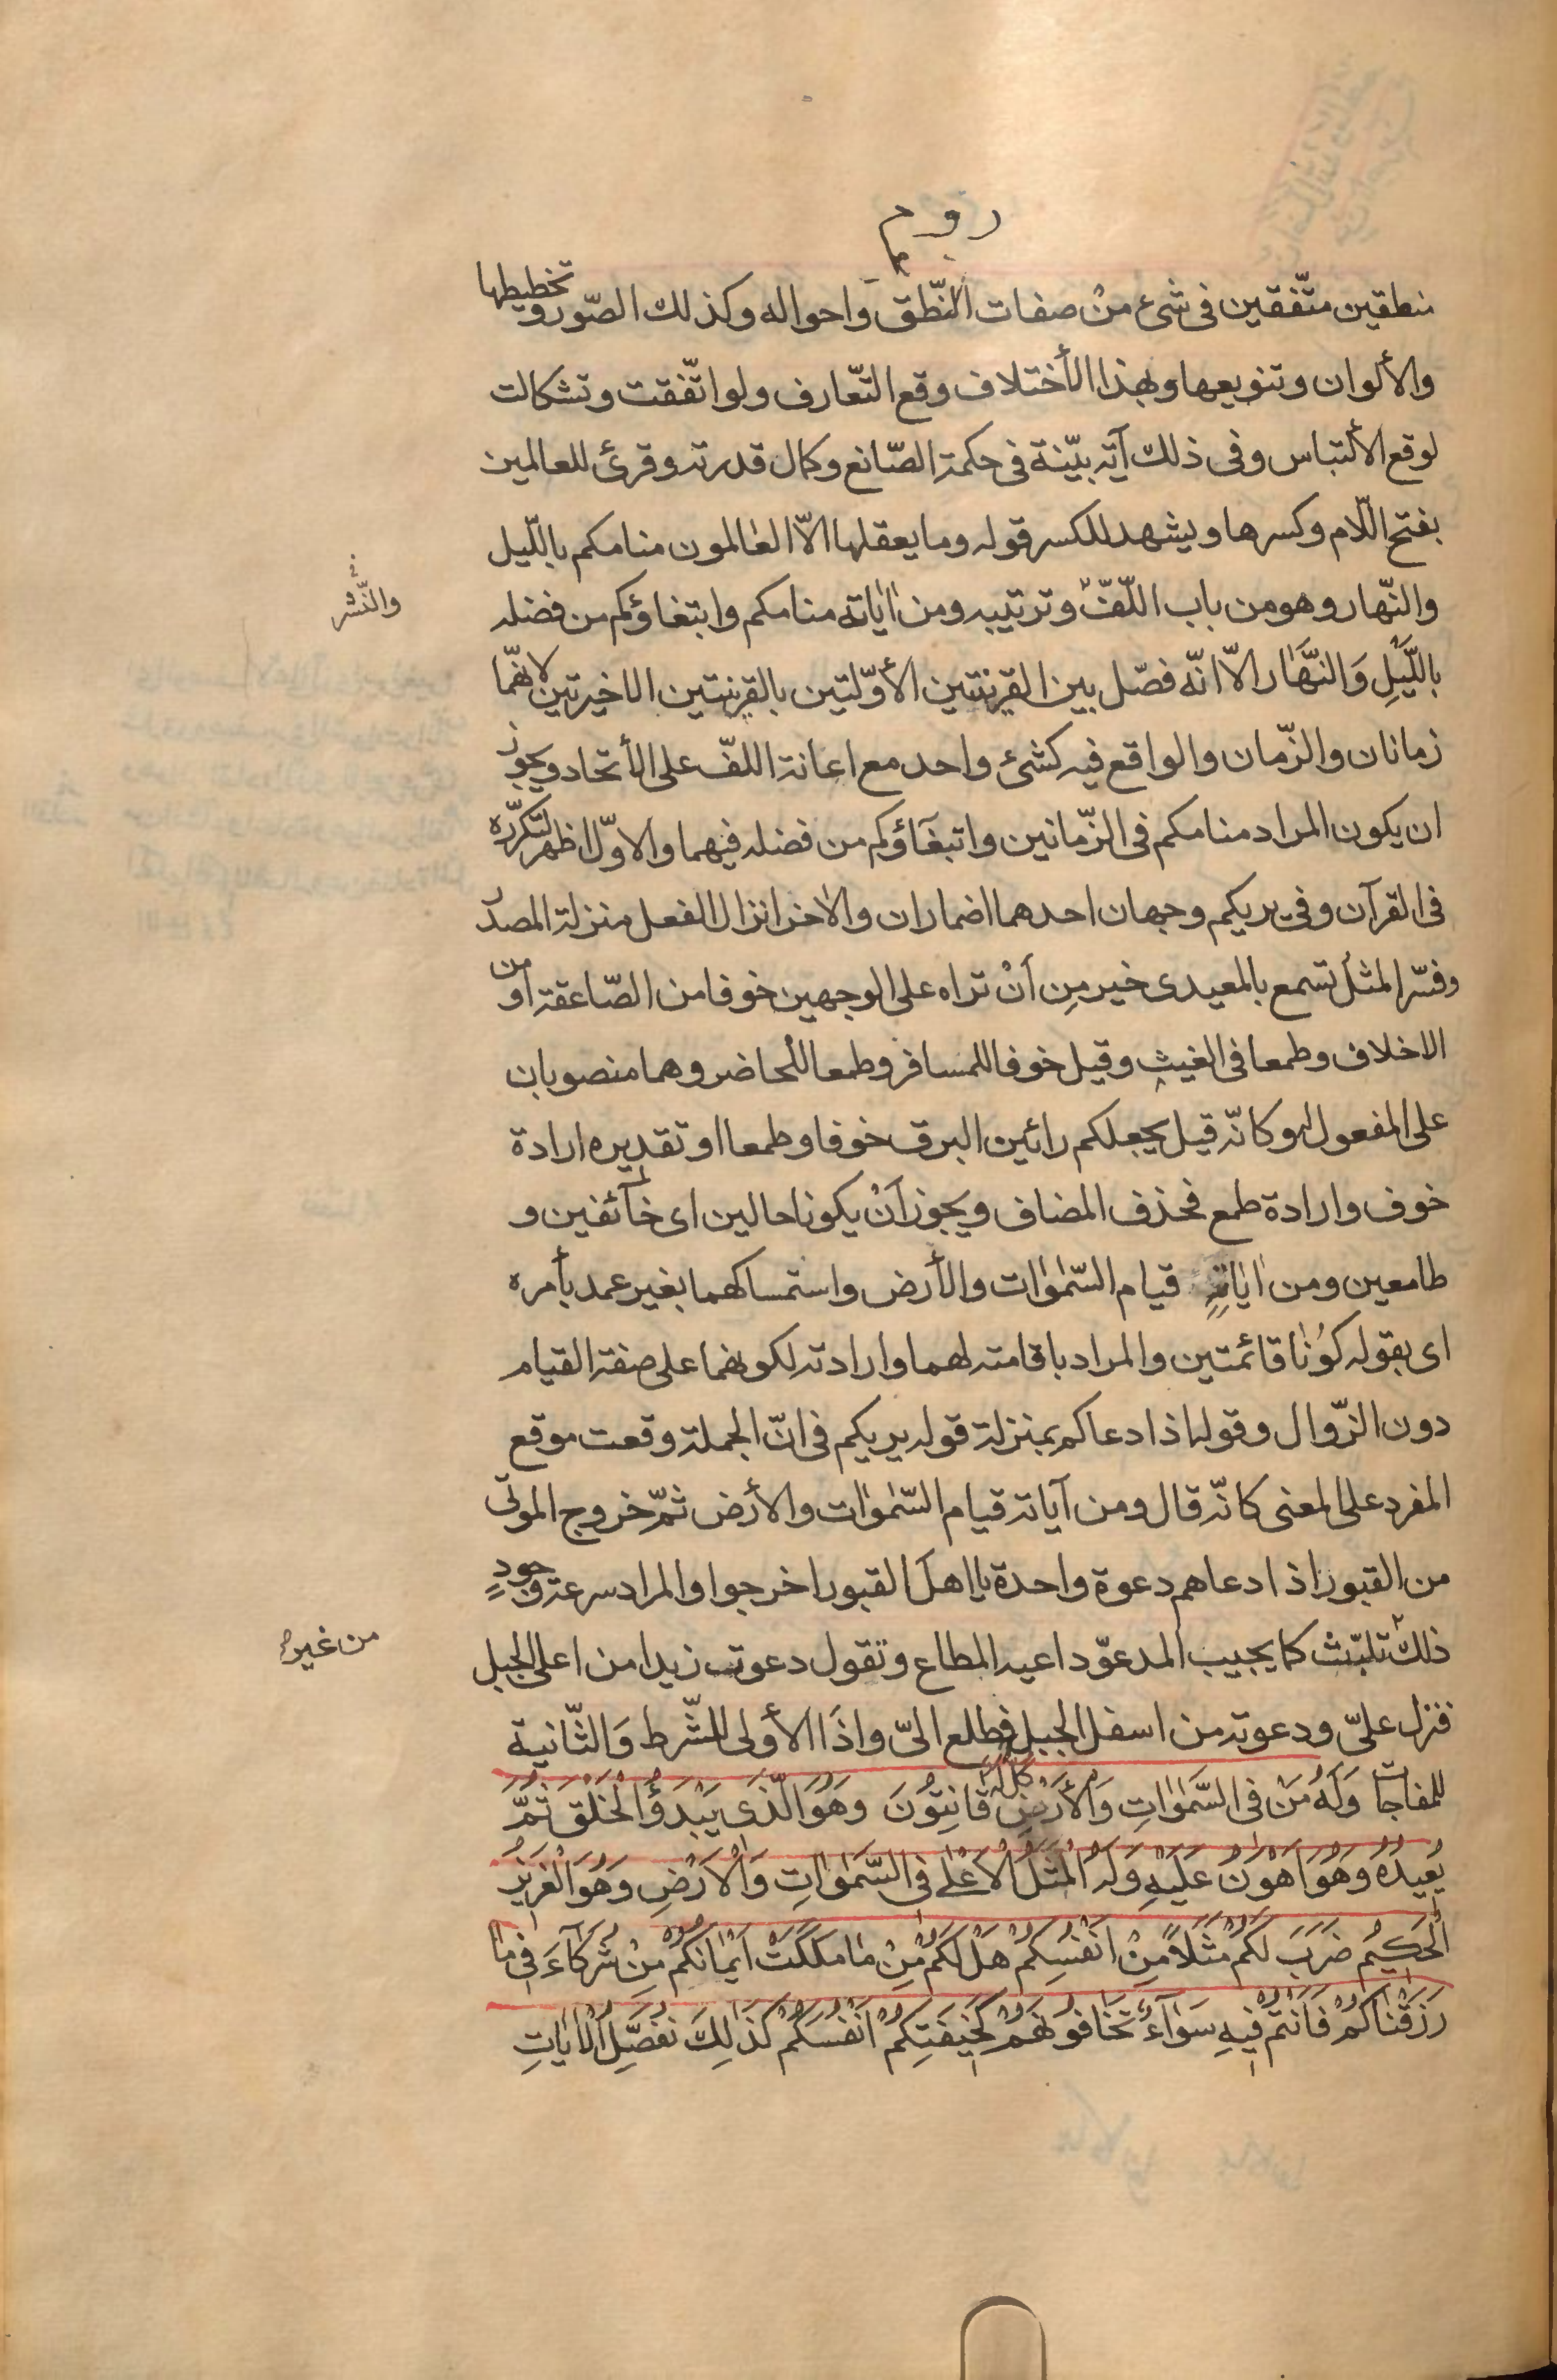 روم
منطقين متّفقين فى شىء منْ صفات النّطق واحواله وكذلك الصّور وتخطيطها
والألوان وتنويعها وبهذا الأختلاف وقع التّعارف ولو اتّفقت وتشكالت
لوقع الألتباس وفى ذلك آية بيّنة فى حكمة الصّانع وكمال قدرته وقرئ للعالمين
بفتح اللّام وكسرها ويشهد للكسر قوله وما يعقلها الاّ العالمون منامكم باللّيل
والنّهار وهو من باب اللّفّ وترتيبه ومن اٰياته منامكم وابتغاؤكم من فضله
والنّشر
باللّيْلِ وَالنَّهٰار الاّ انّه فصّل بين القرينتين الأوّلتين بالقرينتين الاخيرتين لانّهما
زمانان والزّمان والواقع فيه كشئ واحد مع اعانة اللفّ على الأتحاد ويجوز
ان يكون المراد منامكم فى الزّمانين واتبغآؤكم من فضله فيهما والاوّل اظهر لتكرّره
فى القرآن وفى يريكم وجهان احدهما اضمار ان والاخر انزال الفعل منزلة المصدر
وفسّر المثل تسمع بالمعيدى خير مِن أنْ تراه على الوجهين خوفا من الصّاعقة او من
الاخلاف وطمعا فى الغيث وقيل خوفا للمسافر وطمعا للحاضر وهما منصوبان
على المفعول له وكانّه قيل يجعلكم رائين البرق خوفا وطمعا او تقديره ارادة
خوف وارادة طمع فحذف المضاف ويجوز أنْ يكونا حالين اى خآئفين و
طامعين ومن اٰياته قيام السّمٰوٰات والأرض واستمساكهما بغير عمد بأمره
اى بقوله كُونٰا قائمتين والمراد باقامته لهما وارادته لكونهما على صفة القيام
دون الزّوال وقوله اذا دعاكم بمنزلة قوله يريكم فى انّ الجملة وقعت موقع
المفرد على المعنى كانّه قال ومن آياته قيام السّمٰوٰات والأرض ثمّ خروج الموتى
من القبور اذا دعاهم دعوة واحدة يا اهل القبور اخرجوا والمراد سرعة وجودِ
ذلك تلبّث كما يجيب المدعوّ داعيه المطاع وتقول دعوت زيدا من اعلى الجبل
من غير
فنزل علىّ ودعوته من اسفل الجبل فطلع الىّ واذَا الأولى للشّرط وَالثّانية
للمفاجات وَلَهُ مَنْ فى السَّمٰوٰاتِ وَالْأَرْضِ كُلٌّ لَهُ قٰانِتُونَ وَهُوَ الَّذى يَبْدَؤُ الْخَلْقَ ثُمَّ
يُعيدُهُ وَهُوَ اَهْوَنُ عَلَيْهِ وَلَهُ الْمَثَلُ الْاَعْلٰى فى السَّمٰوٰاتِ وَالْاَرْضِ وَهُوَ الْعَزيزُ
الْحَكيمُ ضَرَبَ لَكُمْ مَثَلاً مِنْ اَنْفُسِكُمْ هَلْ لَكُمْ مِنْ مٰا مَلَكَتْ اَيْمٰانُكُمْ مِنْ شُرَكٰآءَ فى مٰا
رَزَقْنٰاكُمْ فَاَنْتُمْ فيهِ سَوٰآءٌ تَخٰافُونَهُمْ كَخيفَتِكُمْ اَنْفُسَكُمْ كَذٰلِكَ نُفَصِّلُ الْاٰيٰاتِ